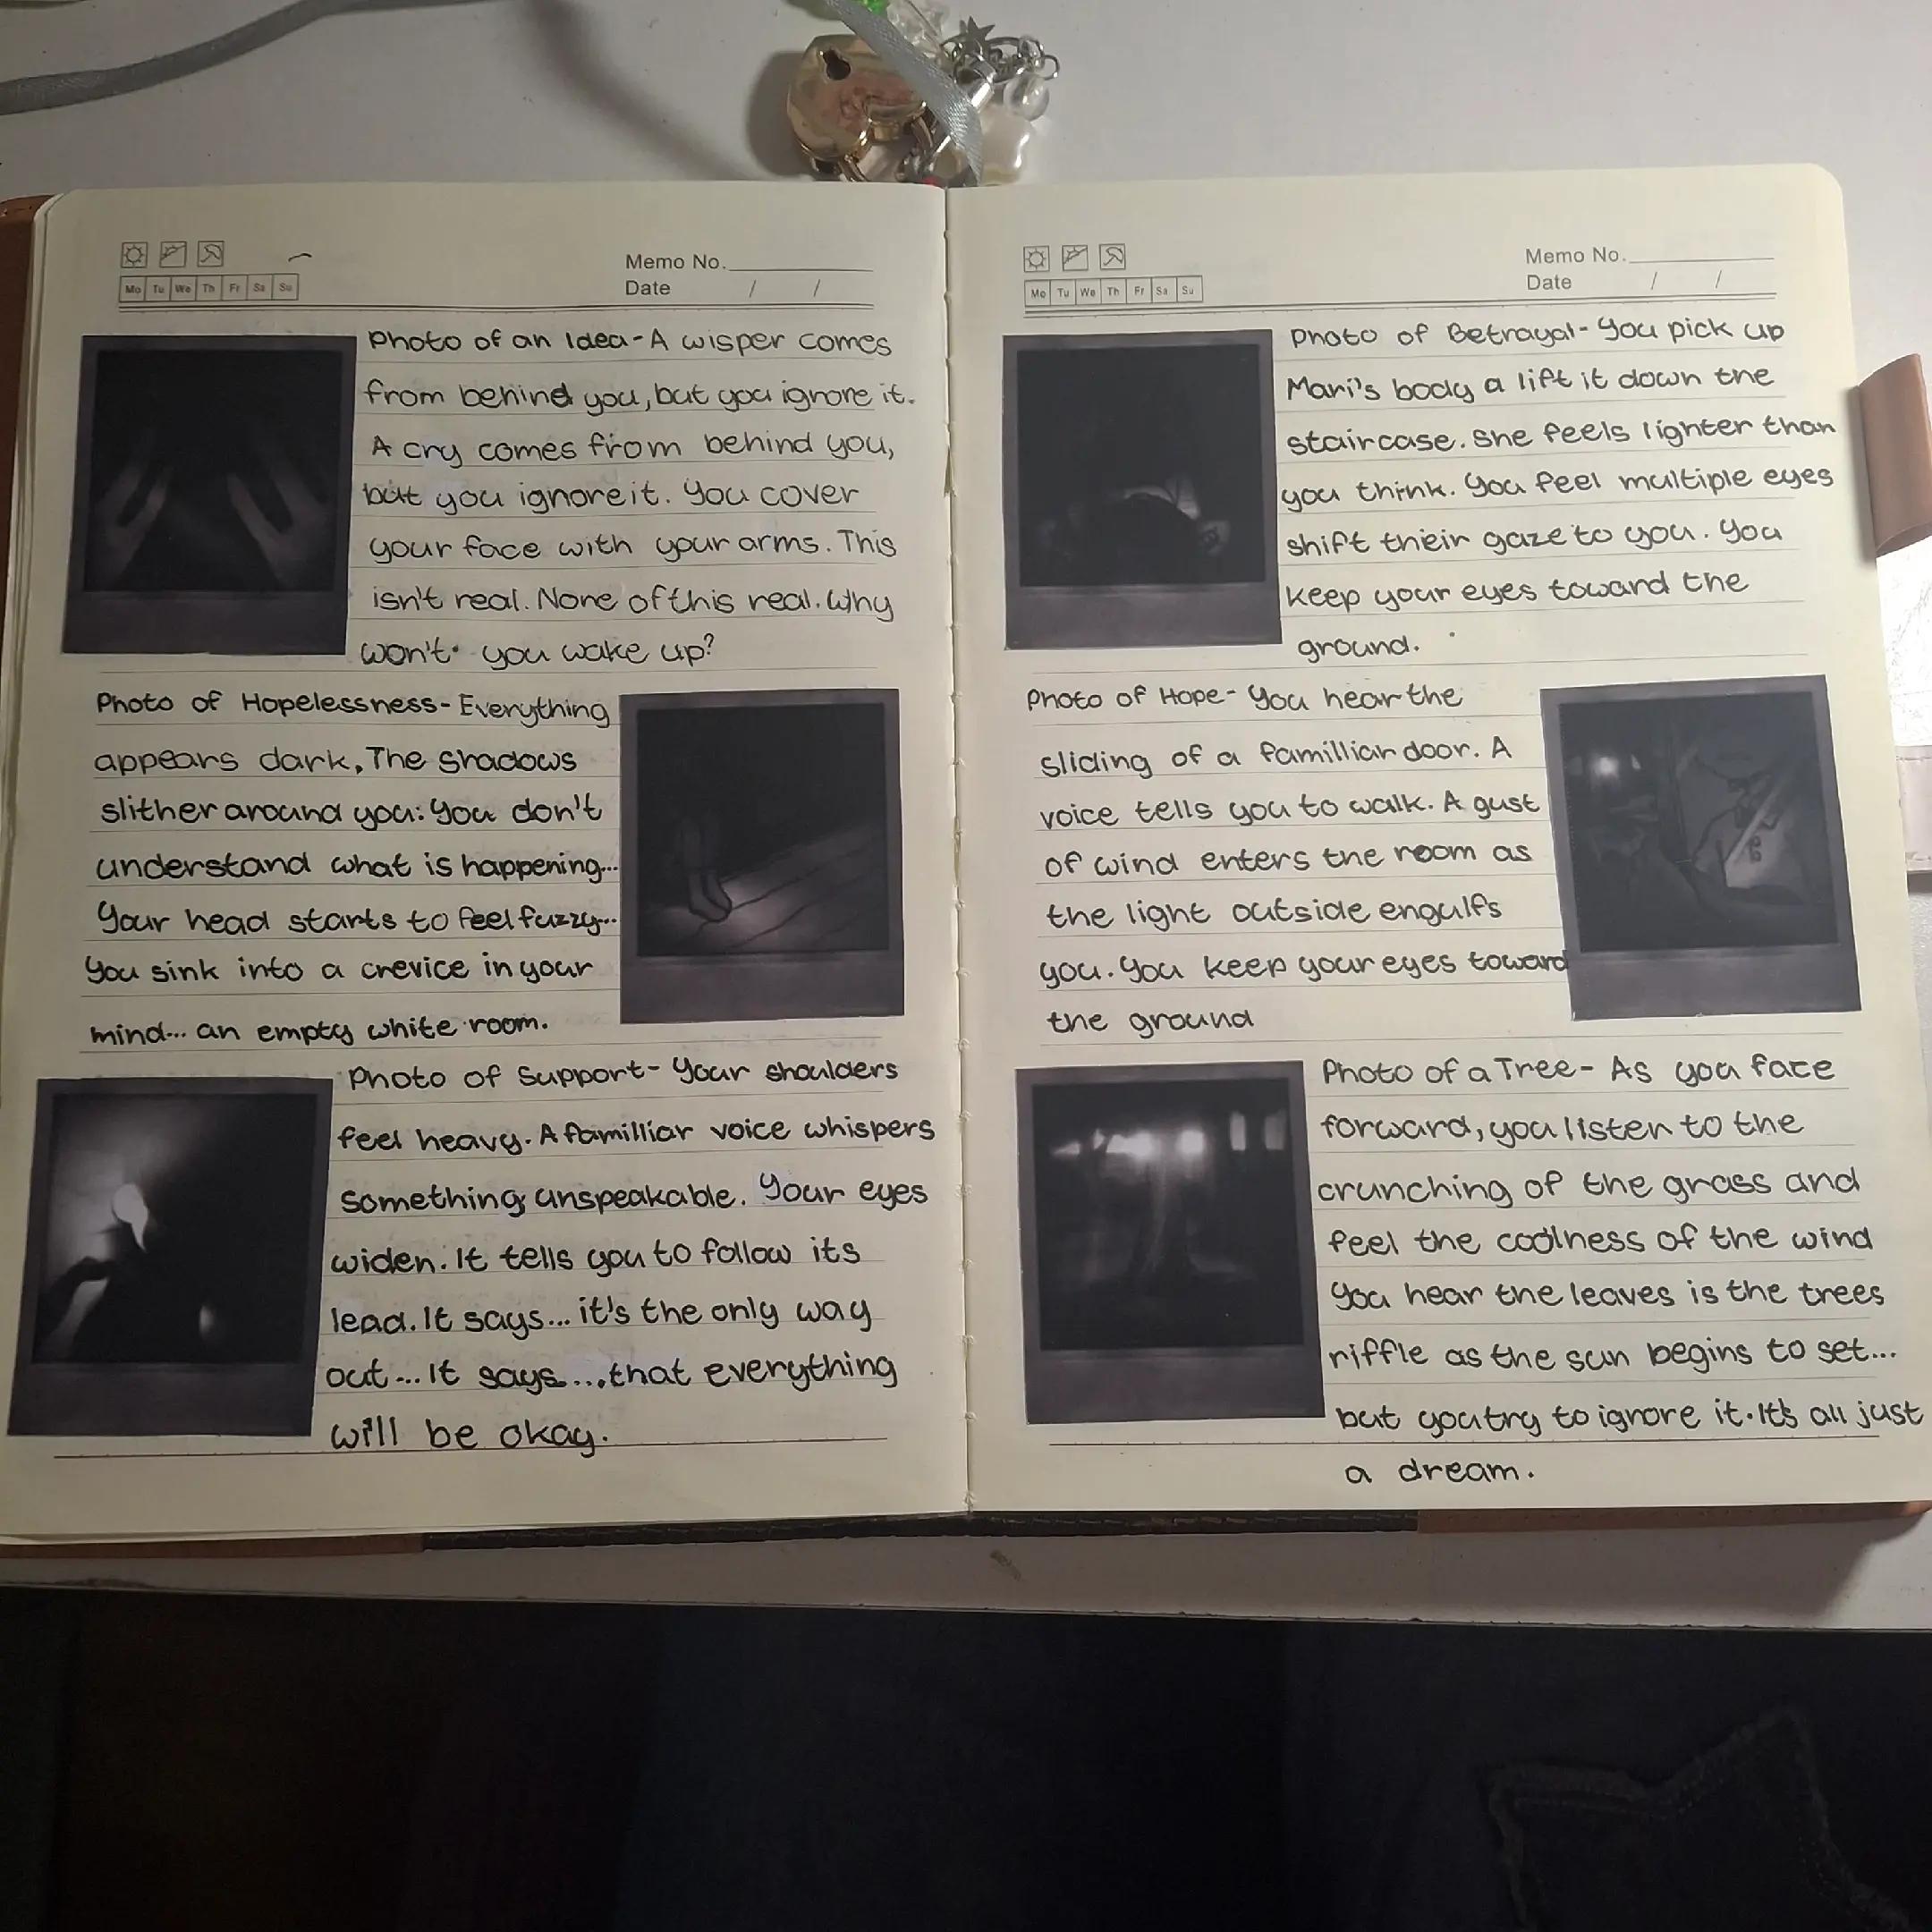 Mo Tu We Th Fr Sa Su
Memo No.
Date / /
Photo of an Idea-A wisper comes
from behind you, but you ignore it.
A cry comes from behind you,
but you ignore it. You cover
your face with your arms. This
isn't real. None of this real. Why
won't you wake up?
Photo of Hopelessness-Everything
appears dark, The shadows
slither around you: You don't
understand what is happening...
Your head starts to feel fuzzy...
You sink into a crevice in your
mind... an empty white room.
Photo of Support- Your shoulders
feel heavy. A familliar voice whispers
something unspeakable. Your eyes
widen. It tells you to follow its
lead. It says... it's the only way
out... It says....that everything
will be okay.
Mo Tu We Th Fr Sa Su
Memo No.
Date / /
Photo of Betrayal-You pick up
Mari's body a lift it down the
staircase. She feels lighter than
you think. You feel multiple eyes
shift their gaze to you. You
keep your eyes toward the
ground.
Photo of Hope- You hear the
sliding of a familliar door. A
voice tells you to walk. A gust
of wind enters the room as
the light outside engulfs
you. You keep your eyes toward
the ground
Photo of a Tree- As you face
forward, you listen to the
crunching of the grass and
feel the coolness of the wind
You hear the leaves is the trees
riffle as the sun begins to set...
but you try to ignore it. It's all just
a dream.